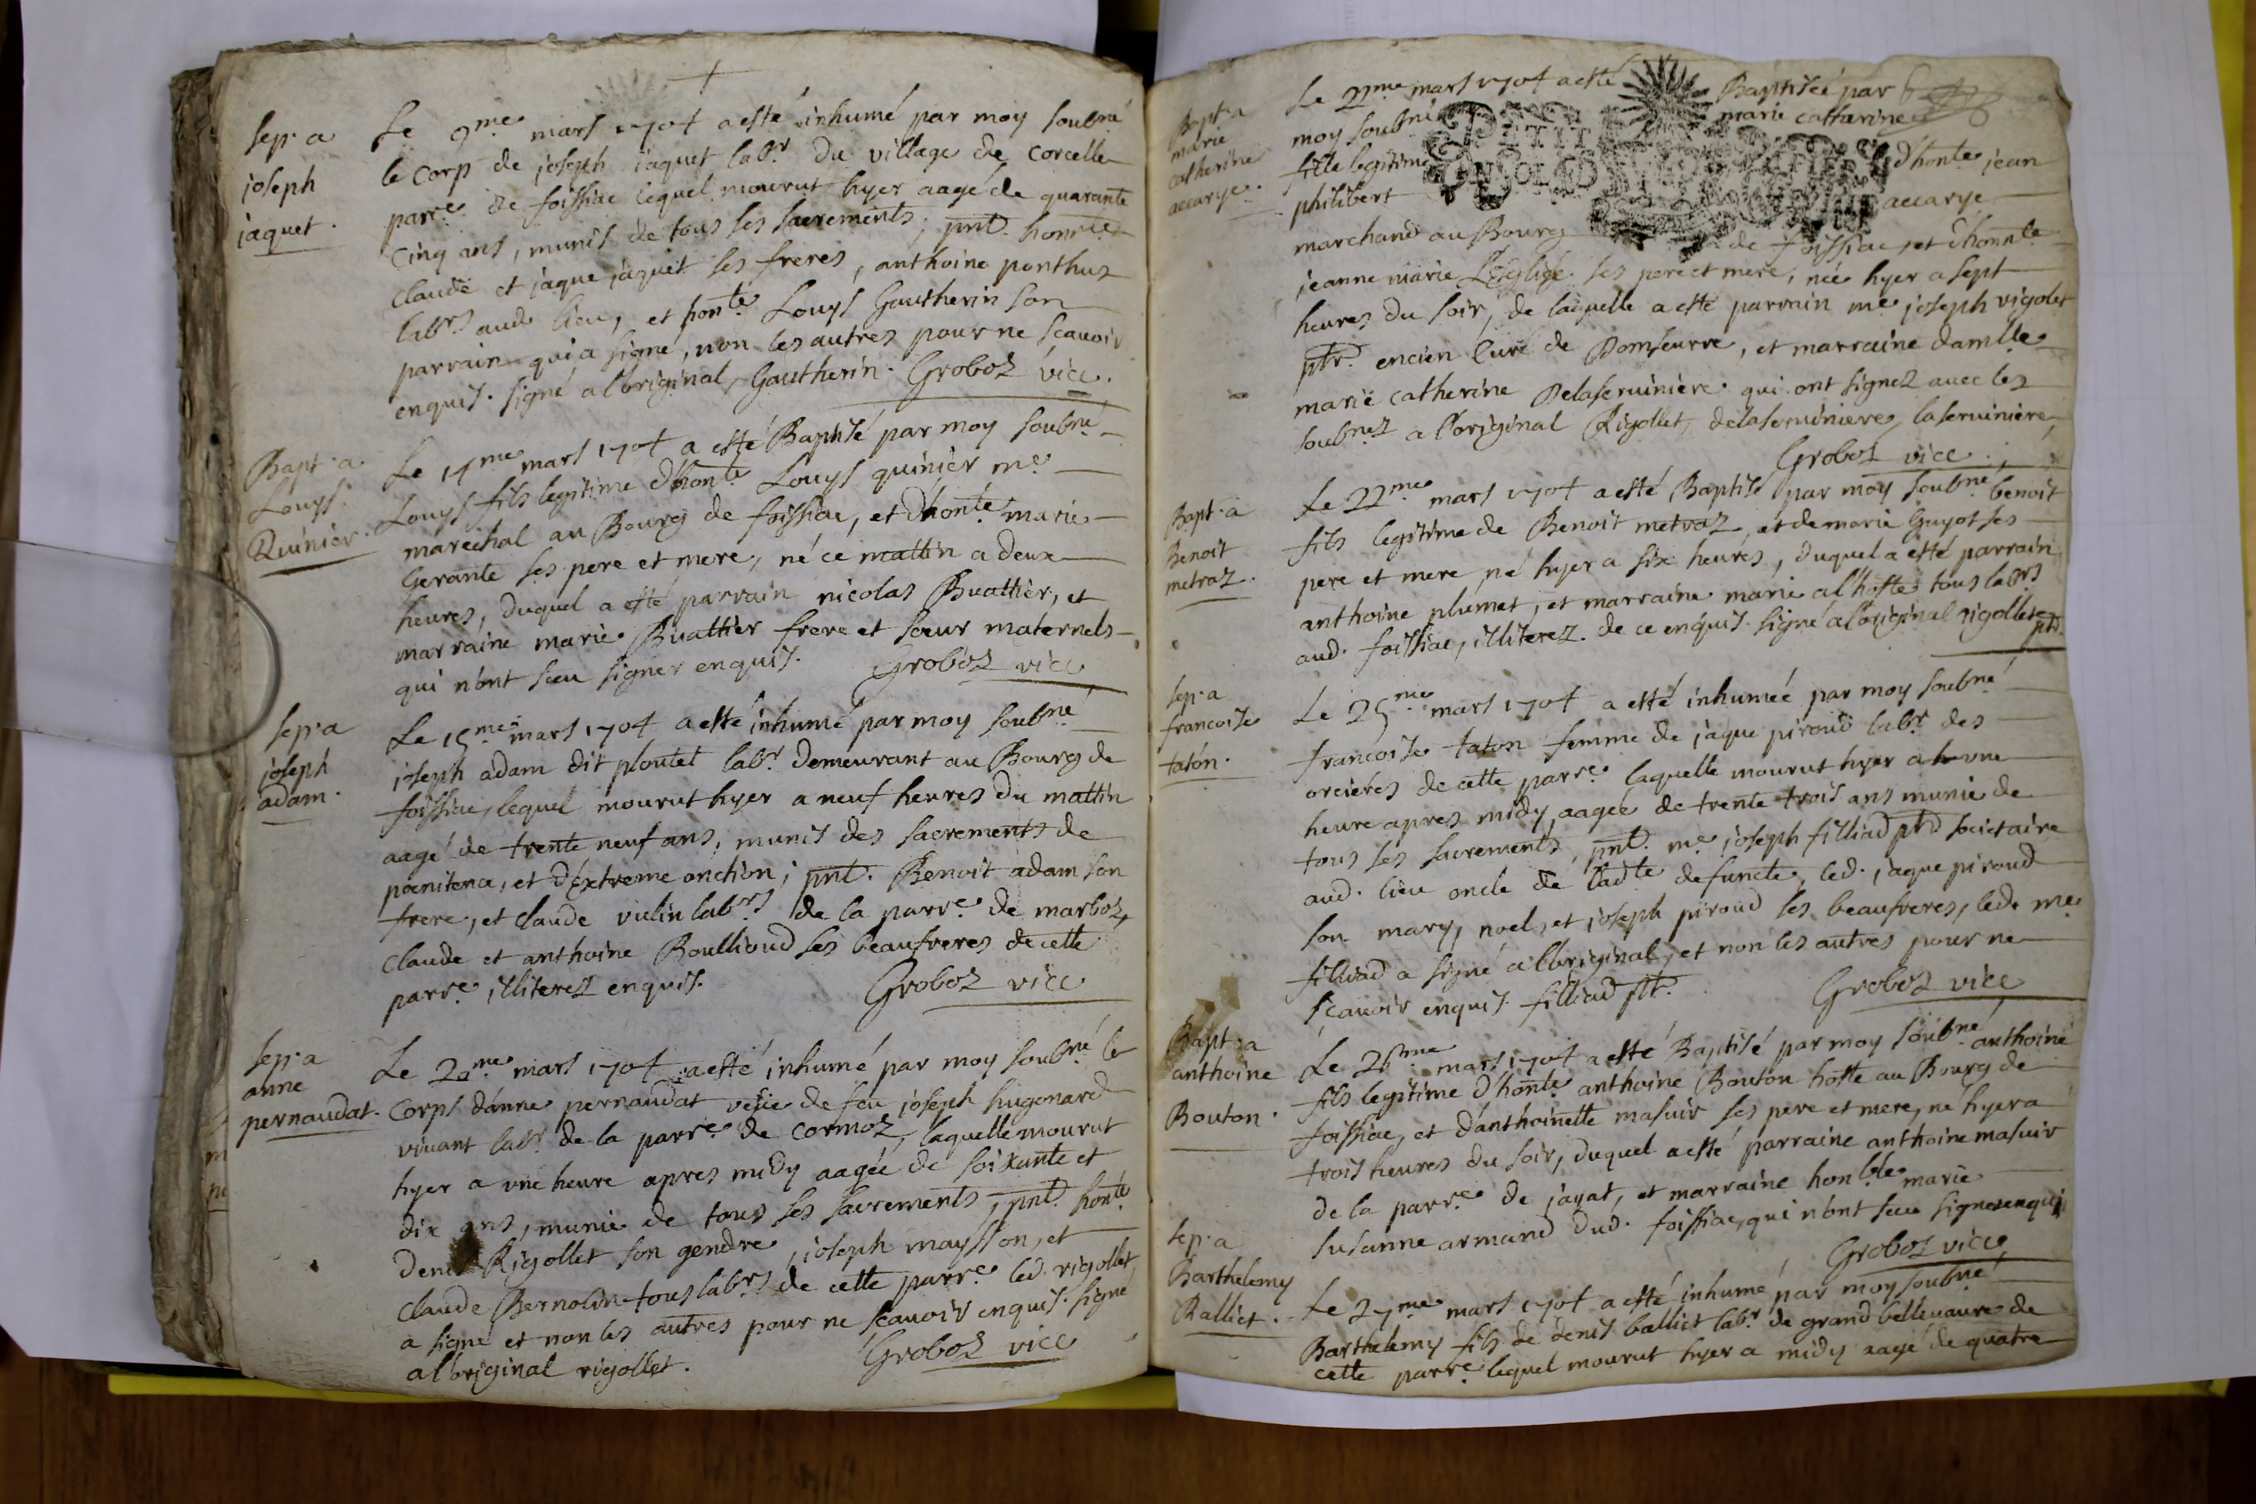 Sep.a
joseph
jaquet.
Le 9me mars 1704 a esté inhumé par moy soubné
le corp de joseph jaquet labr. du village de corcelle
parre. de foissiac lequel mourut hyer aagé de quarante
cinq ans, munis de tous ses sacrements, pnt. honnte
claude et jaque jaquet ses freres, anthoine ponthus
labrs aud. lieu, et honte Louys Gautherin son
parrain qui a signé, non les autres pour ne scavoir
enquis. signé a l'original, Gautherin. Groboz vice.
Bapt.a
Louys.
Quinier.
Le 14me mars 1704 a esté Baptisé par moy soubné
Louys fils legitime d'honte Louys quinier me
marechal au Bourg de foissiac, et d'honte marie
Gerante ses pere et mere, né ce mattin a deux
heures, duquel a esté parrain nicolas Buattier, et
marraine marie Buattier frere et sœur maternels
qui n'ont sceu signer enquis. Groboz vice
Sep.a
joseph
adam.
Le 15me mars 1704 a esté inhumé par moy soubné
joseph adam dit ploutet labr. demeurant au Bourg de
foissiac, lequel mourut hyer a neuf heures du mattin
aagé de trente neuf ans, munis des sacrements de
pœnitence, et d'Extreme onction, pnt. Benoit adam son
frere, et claude vulin labrs de la parre. de marboz,
claude et anthoine Boullioud ses beaufreres de cette
parre. illiterez enquis. Groboz vice
Sep.a
anne
pernaudat.
Le 20me mars 1704 a esté inhumé par moy soubné le
corps d'anne pernaudat vefve de feu joseph hugonard
vivant labr. de la parre. de cormoz, laquelle mourut
hyer a vne heure apres midy aagée de soixante et
dix ans, munie de tous ses sacrements, pnt. honte
denis Rigollet son gendre, joseph maysson, et
claude Bernolin tous labrs de cette parre. led. rigollet
a signé et non les autres pour ne scavoir enquis. signé
a l'original rigollet. Groboz vice
Bapt.a
marie
catherine
accarye.
Le 22me mars 1704 a esté Baptisée par
moy soubné marie catherine
fille legitime d'honte jean
philibert accarye
marchand au Bourg de foissiac, et d'honnte
jeanne marie L'Eglise ses pere et mere, née hyer a sept
heures du soir, de laquelle a esté parrain me joseph rigolet
ptr. encien Curé de Domseurre, et marraine damlle
marie catherine Delaserviniere qui ont signez avec les
soubnez a l'original Rigollet, delaserviniere, laserviniere,
Groboz vice.
Bapt.a
Benoit
metraz.
Le 22me mars 1704 a esté Baptisé par moy soubné benoit
fils legitime de Benoit metraz, et de marie Guyot ses
pere et mere né hyer a six heures, duquel a esté parrain
anthoine plumet, et marraine marie alhoste tous labrs
aud. foissiac, illiterez. de ce enquis. signé a l'original rigollet
ptr.
Sep.a
francoise
taton.
Le 25me mars 1704 a esté inhumeé par moy soubné
francoise taton femme de jaque piroud labr. des
orcieres de cette parre. laquelle mourut hyer a vne
heure apres midy, aageé de trente trois ans munie de
tous ses sacrements, pnt. me joseph filliad ptr societaire
aud. lieu oncle de ladte defuncte, led. jaque piroud
son mary, noel, et joseph piroud ses beaufreres, led. me
filliad a signé a l'original, et non les autres pour ne
scavoir enquis. filliad ptr. Groboz vice
Bapt.a
anthoine
Bouton.
Le 26me mars 1704 a esté Baptisé par moy soubné anthoine
fils legitime d'honte anthoine Bouton hoste au Bourg de
foissiac, et d'anthoinette masuir ses pere et mere, né hyer a
trois heures du soir, duquel a esté parraine anthoine masuir
de la parre. de jayat, et marraine honble marie
susanne armand dud. foissiac, qui n'ont sceu signer enquis
Groboz vice
Sep.a
Barthelemy
Balliet.
Le 27me mars 1704 a esté inhumé par moy soubné
Barthelemy fils de denis balliet labr. de grand bellevavre de
cette parre. lequel mourut hyer a midy aagé de quatre